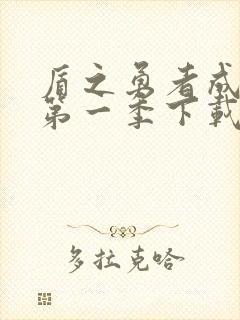 盾之勇者成
第一季下載
多拉克哈